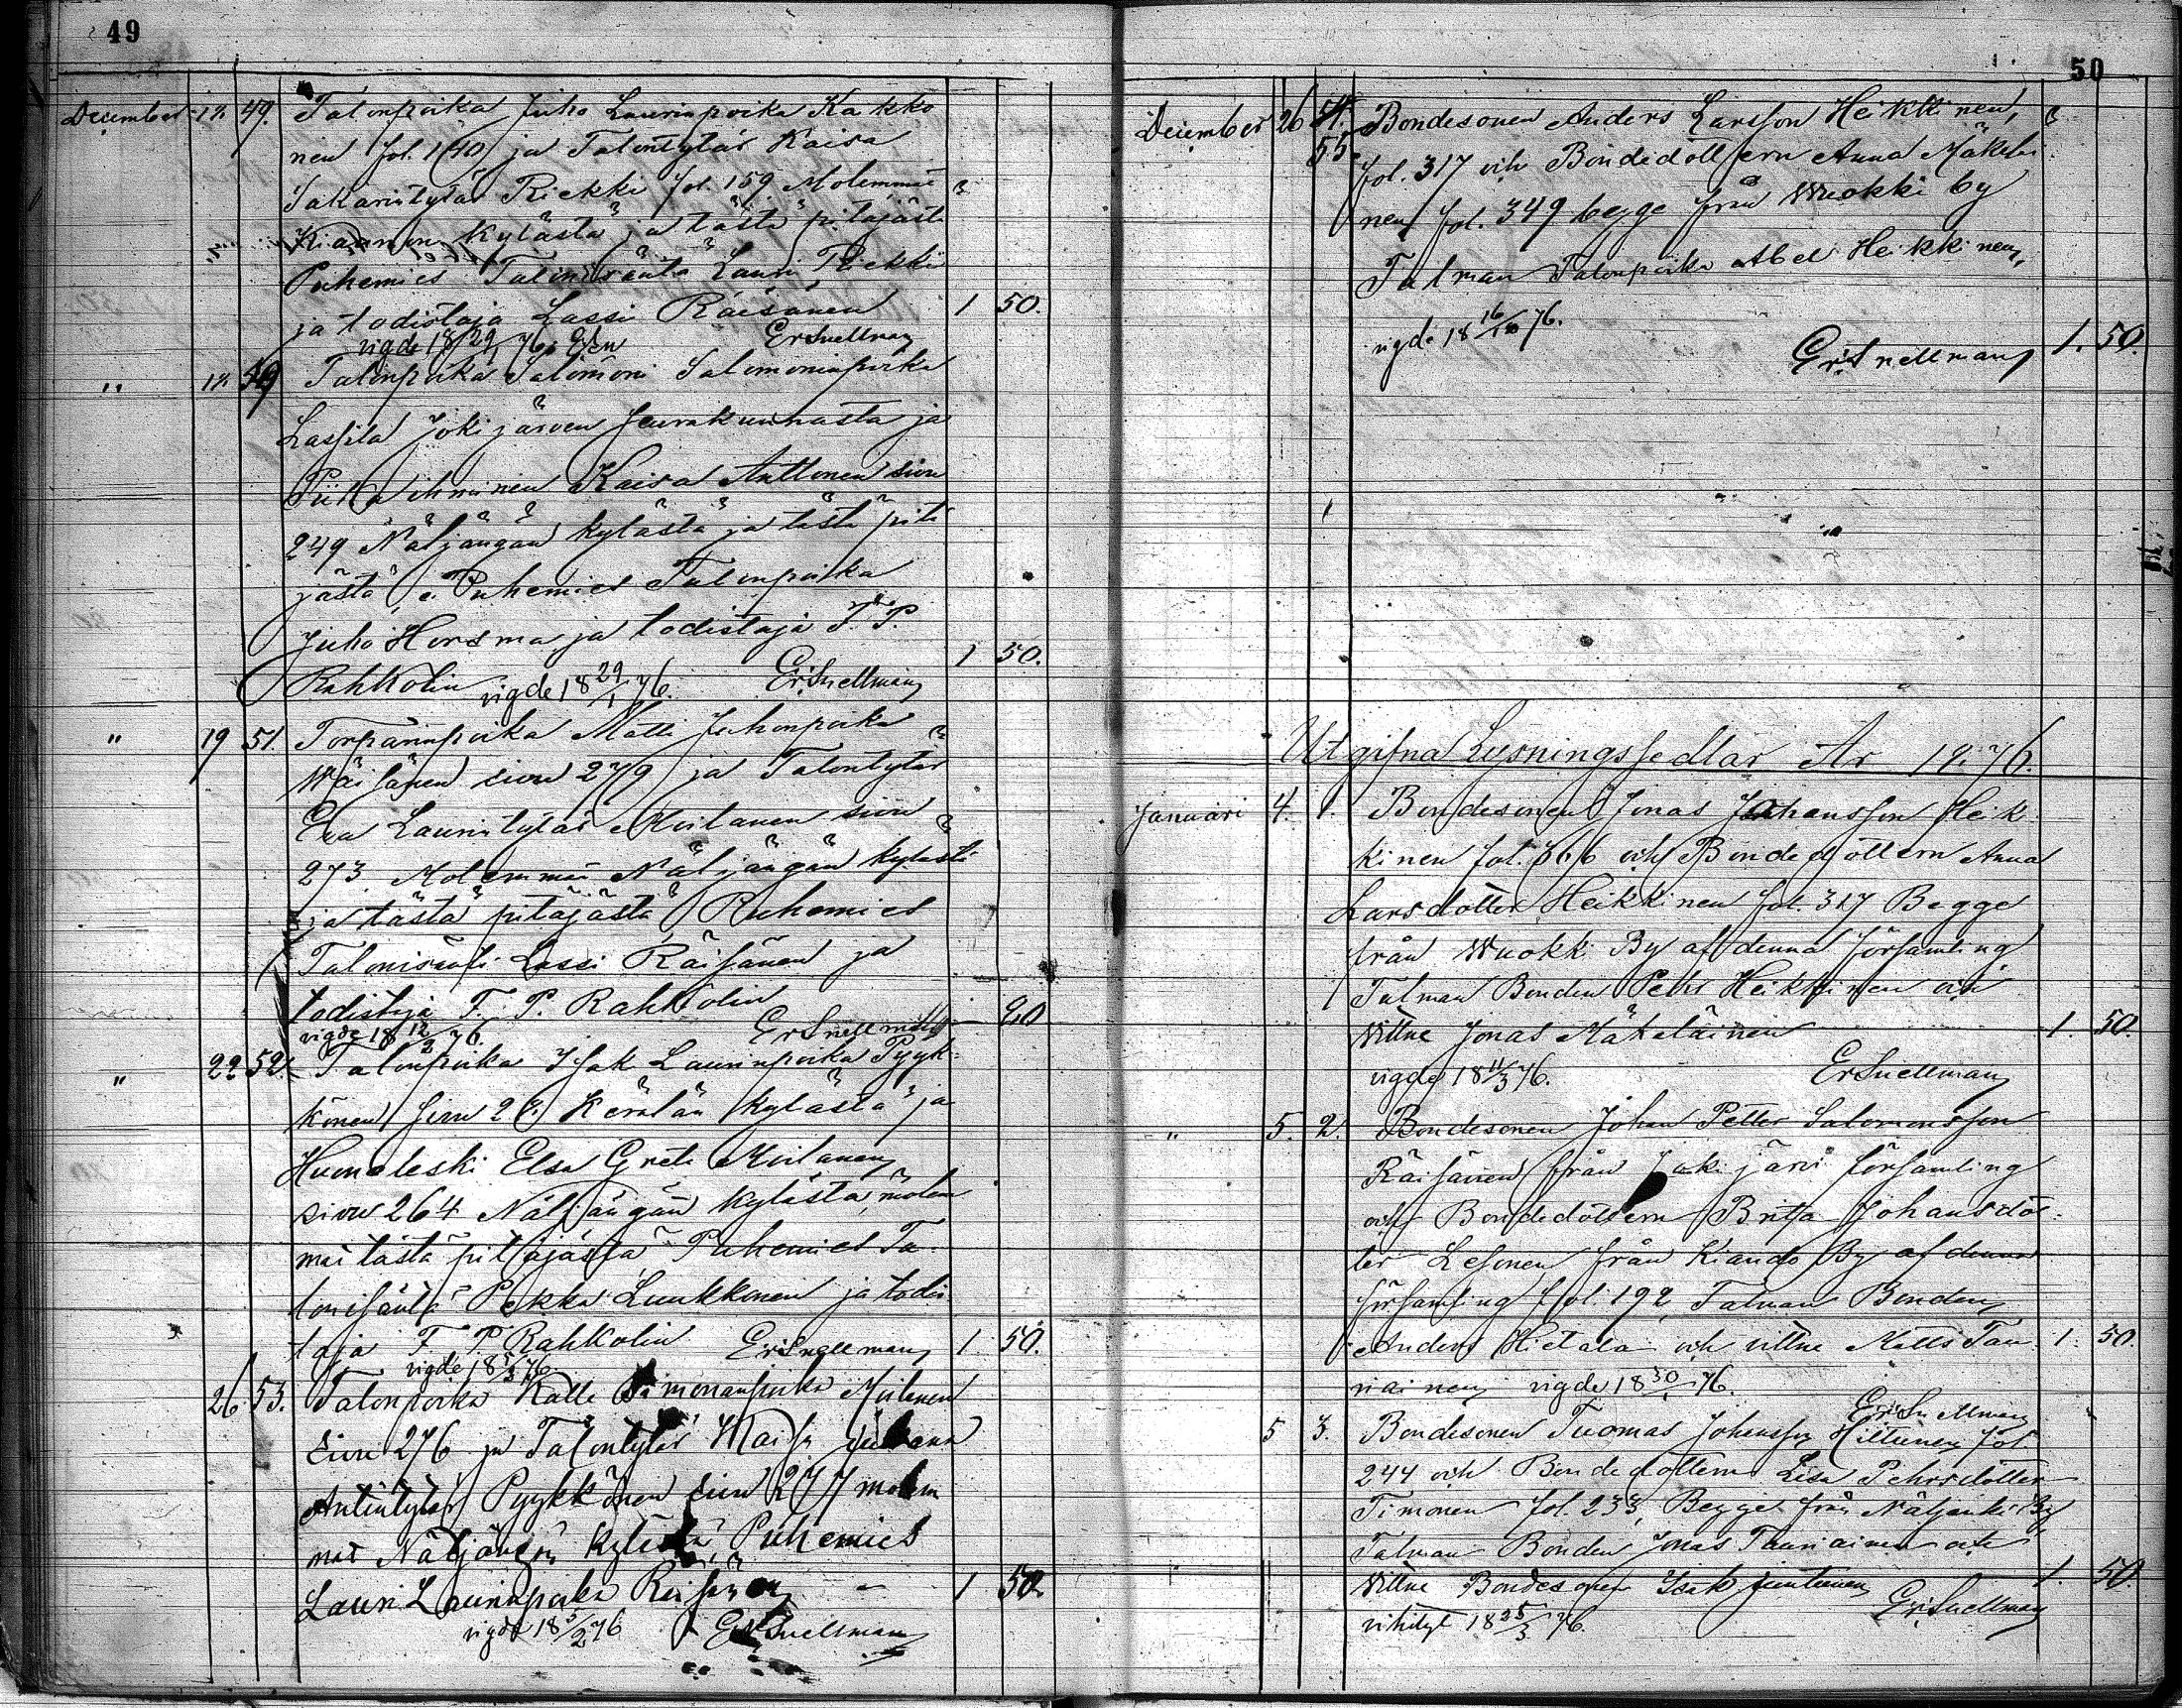 49
December 18 49. Talonpoika Juho Laurinpoika Kakko
nen fol. 140 ja Talontytär Kaisa
Sakarintytär Riekki fol. 159 Molemmat
Kiannon kylästä ja tästä pitäjästä
Puhemies Talonisäntä Lauri Riekki
ja todistaja Lassi Räisänen 1 50.
vigde 18 29/1 76. Er Snellman
" 18 Talonpoika Salomoni Salomoninpoika
Lassila Jokijärven seurakunnasta ja
Piika ihminen Kaisa Anttonen sivu
249 Näljängän kylästä ja tästä pitä
jästä, Puhemies Talonpoika
Juho Horsma ja todistaja F. P.
Rahkolin vigde 18 29/1 76. Er Snellman 1 50.
" 19 51. Torpärinpoika Matti Juhonpoika
Wäisänen sivu 279 ja Talontytär
Eva Laurintytär Moilanen sivu
273 Molemmat Näljängän kylästä
ja tästä pitäjästä, Puhemies
Talonisäntä Lassi Räisänen ja
todistaja F. P. Rahkolin
vigde 18 12/2 76. Er Snellman
" 22 52. Talonpoika Isak Laurinpoika Pyyk-
könen sivu Kerälän kylästä ja
Huonoleski Elsa Greta Moilanen
sivu 264 Näljängän kylästä, molem
mat tästä pitäjästä, Puhemies Ta-
lonisäntä Pekka Luukkonen ja todis
taja F. P. Rahkolin Er Snellman 1. 50.
vigde 18 5/3 76.
26 53. Talonpoika Kalle Simonanpoika Moilanen
sivu 276 ja Talontytär
Antintytär Pyykkönen sivu 277 molem
mat Näljängän kylästä, Puhemies
Lauri Laurinpoika Räisänen 1 50.
vigde 18 5/2 76 Er Snellman
50
December 26 55. Bondesonen Anders Larsson Heikkinen,
fol. 317 och Bondedottern Anna Mäkeläi
nen fol. 349 begge från Wuokki by
Talman Talonpoika Abel Heikkinen,
vigde 18 16/10 76.
Er Snellman 1. 50.
Utgifna Lysningssedlar År 1876.
Januari 4. 1. Bondesonen Jonas Johansson Heik
kinen fol. 366 och Bondedottern Anna
Larsdotter Heikkinen fol. 317 Begge
från Wuokki By af denna församling
Talman Bonden Petter Heikkinen och
Vittne Jonas Mäkeläinen 1. 50.
vigde 18 11/3 76. Er Snellman
" 5. 2. Bondesonen Johan Petter Salomonsson
Räisänen från Jokijärvi församling
och Bondedottern Brita Johansdot-
ter Lesonen från Kiando By af denna
församling fol. 192, Talman Bonden
Anders Hietala och vittne Matts Tau 1. 50.
riainen vigde 18 30/1 76.
Er Snellman
5 3. Bondesonen Tuomas Johansson Hiltunen fol.
244 och Bondedottern Lisa Pehrsdotter
Timonen fol. 233, Begge från Näljänkä By
Talman Bonden Jonas Tauriainen och
Vittne Bondesonen Isak Juntunen 1. 50.
vihityt 18 25/3 76. Er Snellman